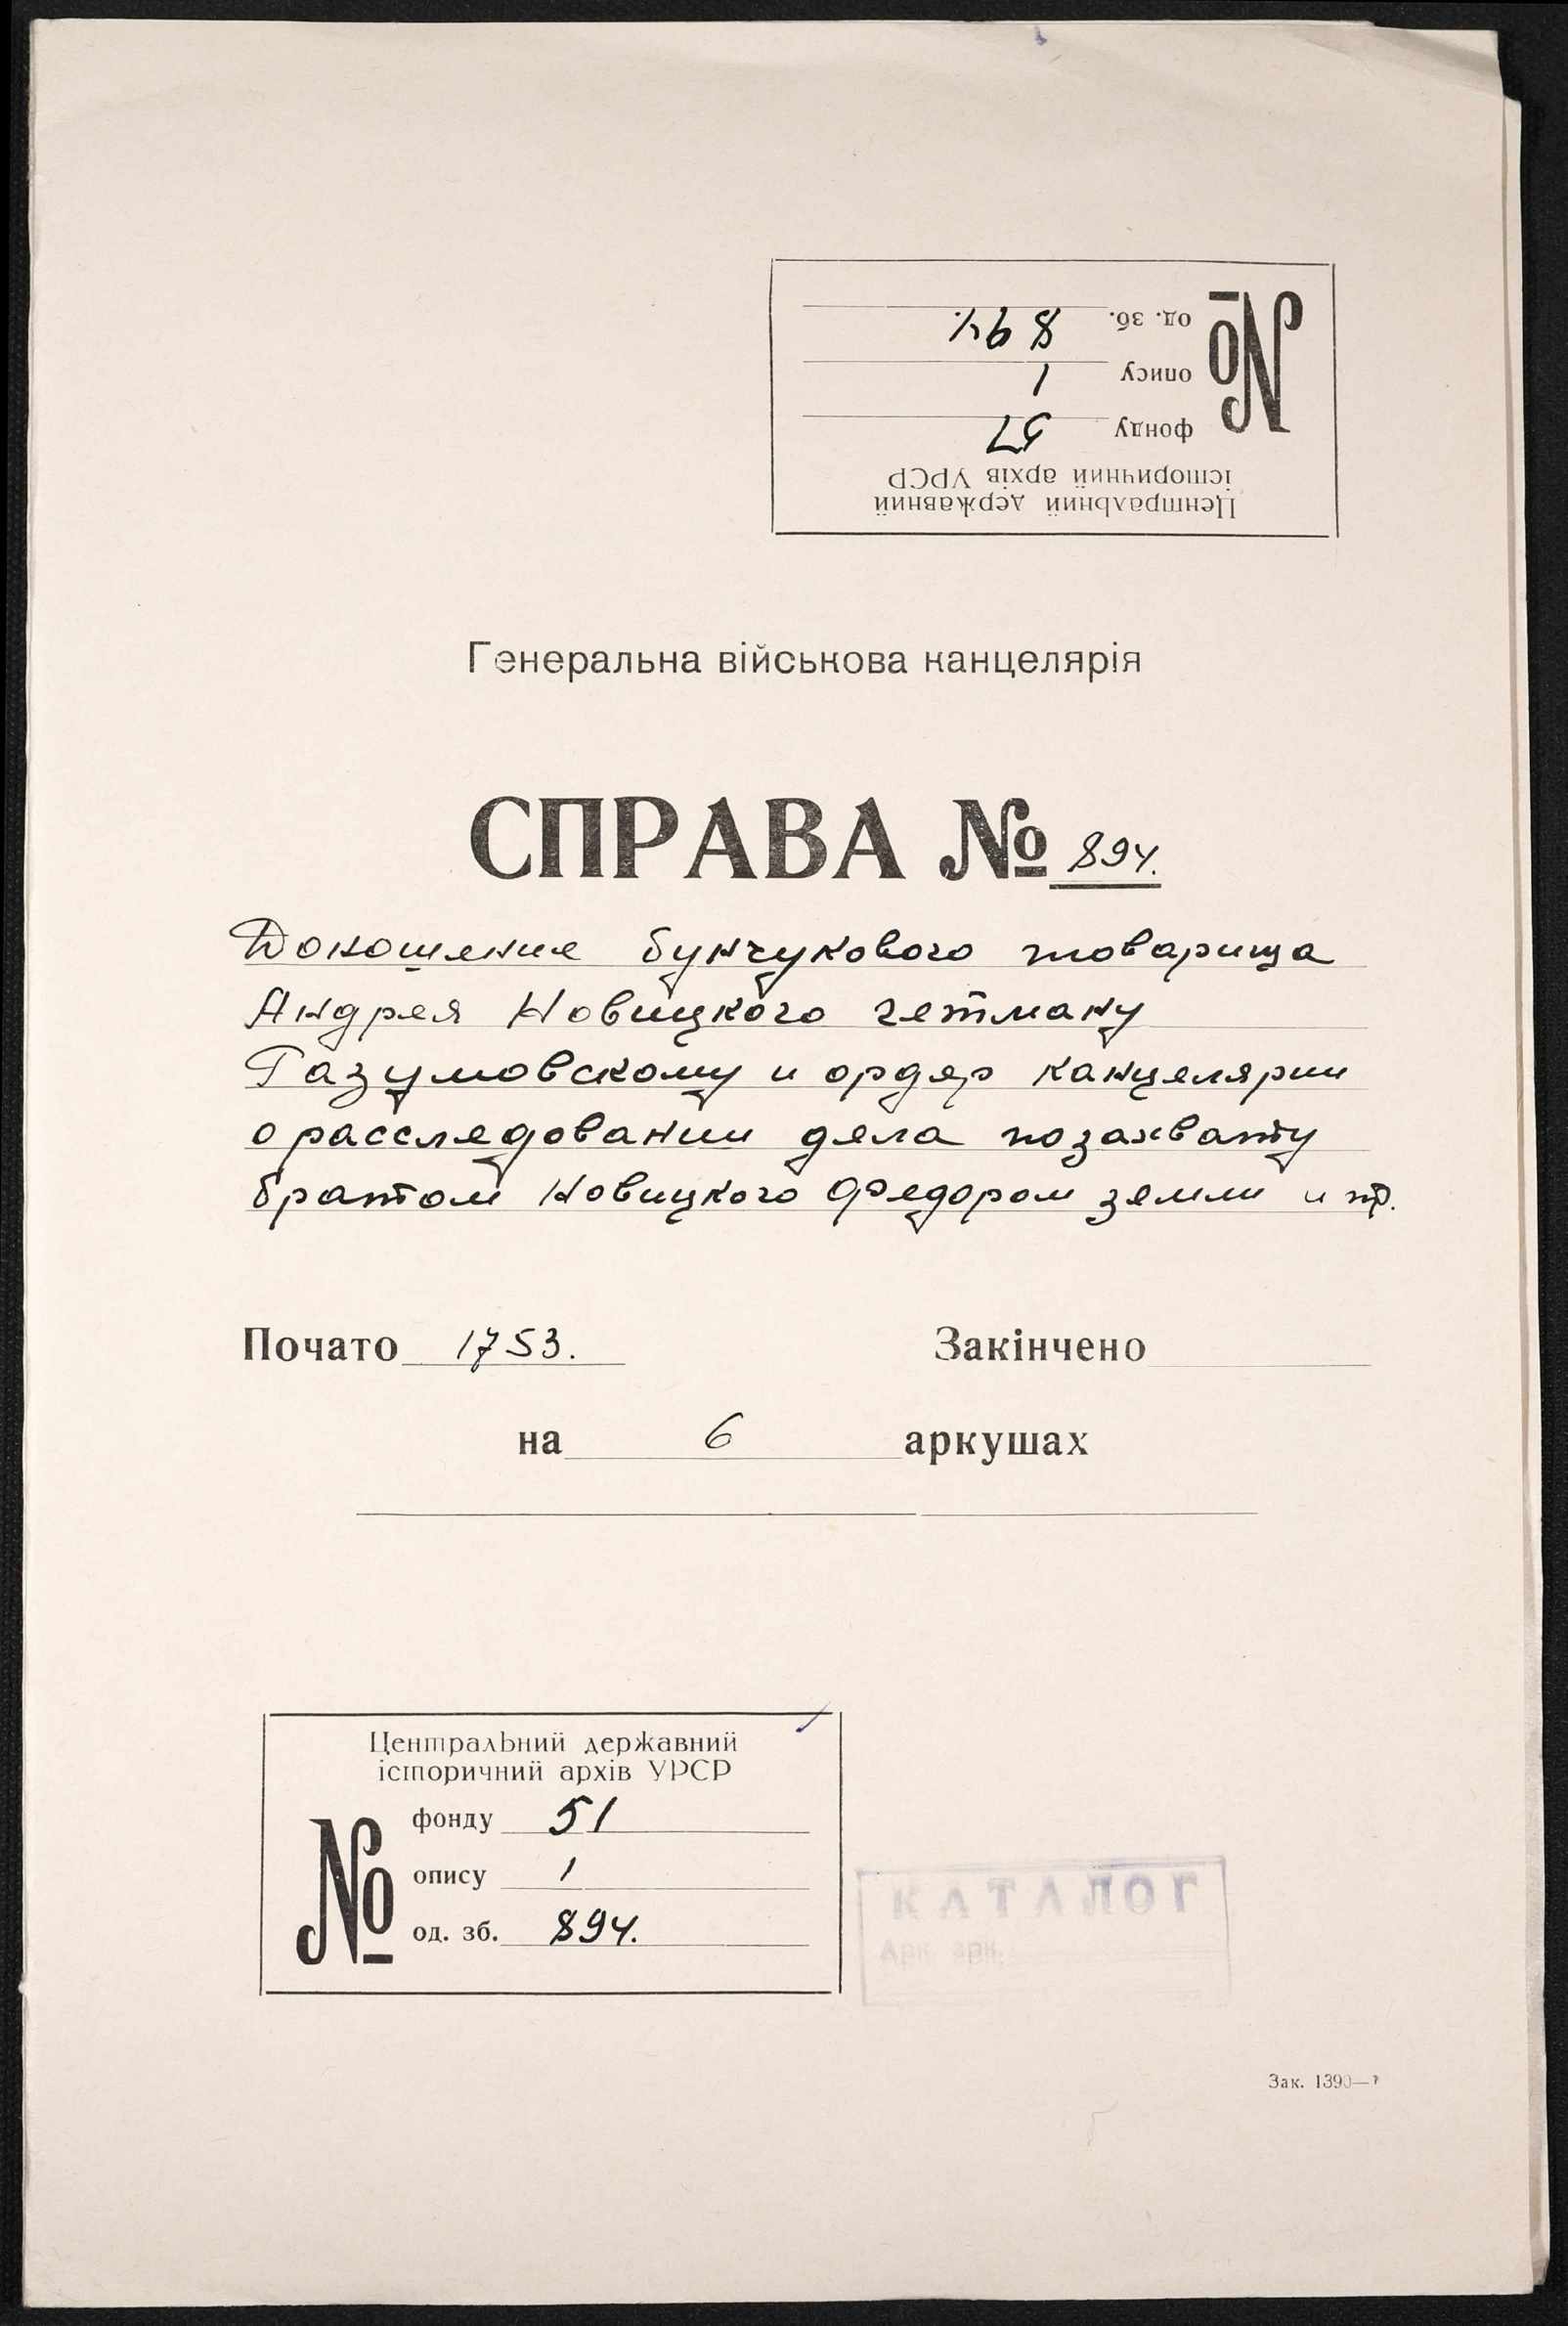 Центральний державний
історичний архів УРСР
фонду 51
опису 1
од. зб. 894.
№
Генеральна військова канцелярія
СПРАВА № 894.
Доношение бунчукового товарища
Андрея Новицкого гетману
Разумовскому и ордер канцелярии
о расследовании дела по захвату
братом Новицкого Федором земли и пр.
Почато 1753. Закінчено
на 6 аркушах
Центральний державний
історичний архів УРСР
№
фонду 51
опису 1
од. зб. 894.
КАТАЛОГ
Арк. арк.
Зак. 1390—